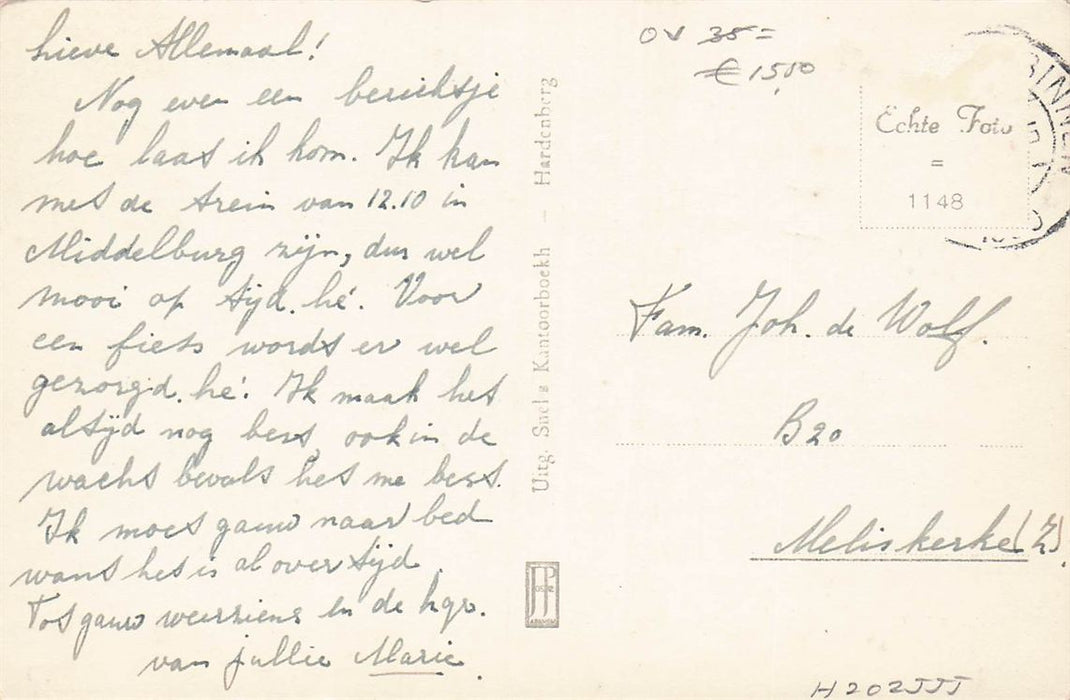 Lieve Allemaal!
Nog even een berichtje
hoe laat ik kom. Ik kan
met de trein van 12.10 in
Middelburg zijn, dus wel
mooi op tijd. hé. Voor
een fiets wordt er wel
gezorgd. hé. Ik maak het
altijd nog best, ook in de
wacht bevalt het me best.
Ik moet gauw naar bed
want het is al over tijd.
Tot gauw weerziens en de hgr.
van jullie Marie.
Uitg. Snel's Kantoorboekh – Hardenberg
OV 35=
€ 15,00
Echte Foto
=
1148
BINNEN
Fam. Joh. de Wolf.
B20
Meliskerke (Z).
JP
H202555